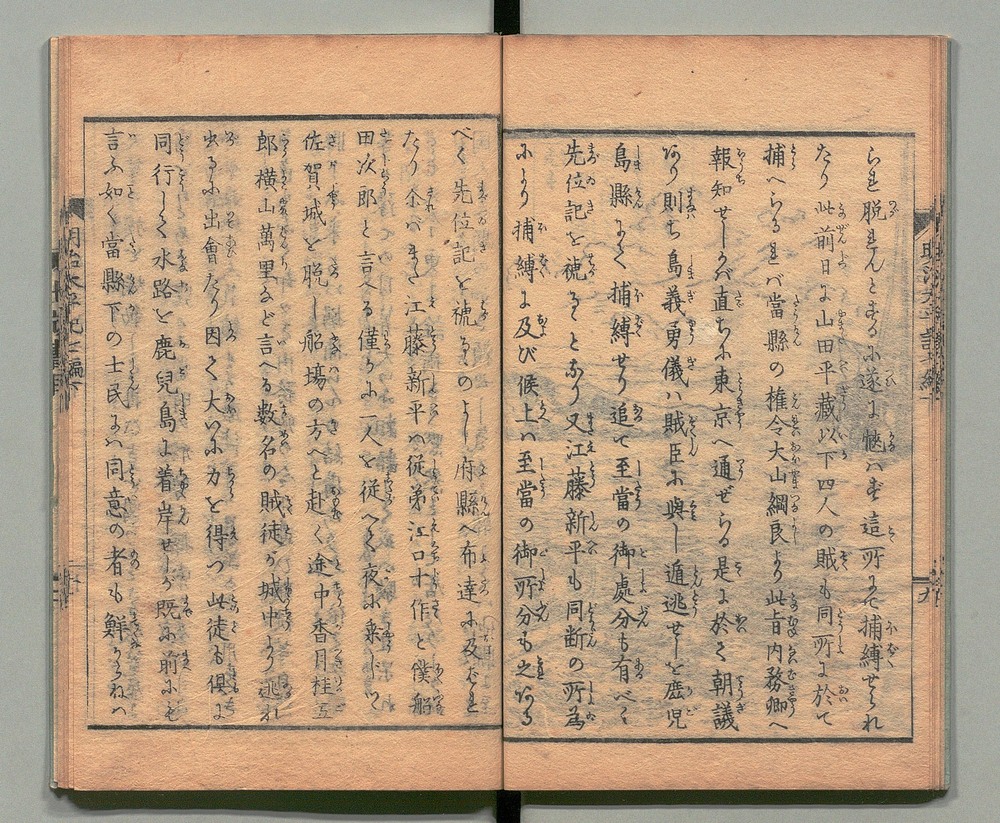 られ脱れんとするに遂に憾はず這所にて捕縛せられ
たり此前日に山田平蔵以下四人の賊も同所に於て
捕へらるれバ當縣の権令大山綱良より此旨内務卿へ
報知せしかバ直ちに東京へ通ぜらる是に於て朝議
あり則ち島義勇儀ハ賊臣に與し遁逃せしを鹿児
島縣にて捕縛せり追て至當の御處分も有べく
先位記を褫るゝとなり又江藤新平も同断の所為
により捕縛に及び候上ハ至當の御所分も之ある
べく先位記を褫るのよし府縣へ布達に及バれ
たり余バまた江藤新平ハ従弟江口十作と僕船
田次郎と言へる僅かに二人を従へて夜に乗じて
佐賀城を脱し船塲の方へと赴く途中香月桂五
郎横山萬里など言へる数名の賊徒が城中より逃れ
出るに出會たり因て大いに力を得つ此徒も倶に
同行して水路を鹿兒島に着岸せしが既に前にも
言ふ如く當縣下の士民にハ同意の者も鮮からねハ
明治太平記七編下